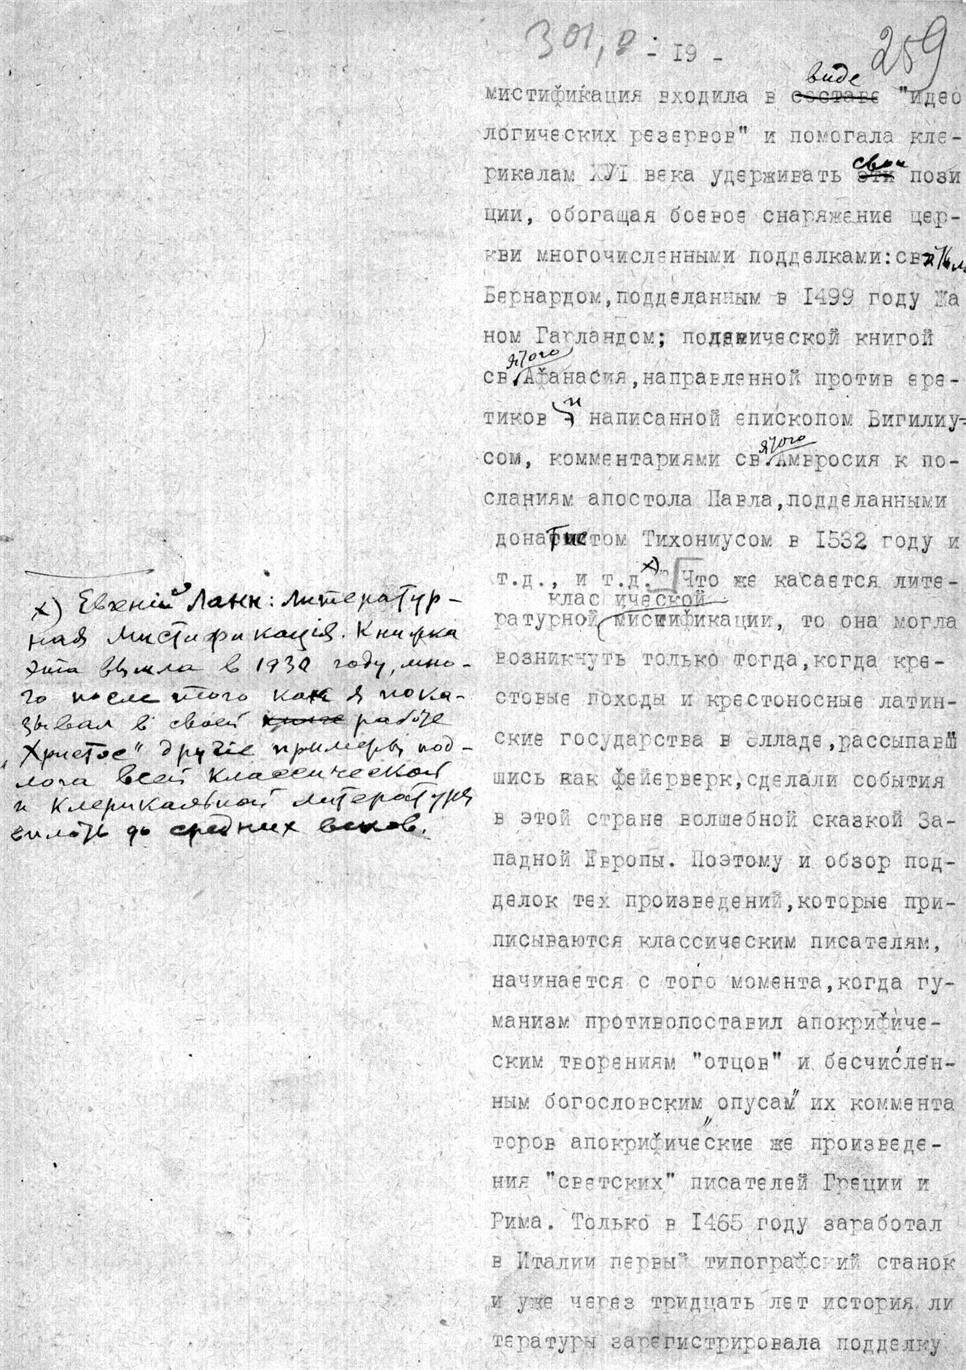 301,
- 19 -
259
виде
мистификация входила в составе "идео
логических резервов" и помогала кле-
свои
рикалам ХУІ века удерживать эти пози
ции, обогащая боевое снаряжение цер-
кви многочисленными подделками: святым
Бернардом, подделанным в 1499 году Жа
ном Гарландом; полемической книгой
ятого
св. Афанасия, направленной против ере-
и
тиков написанной епископом Вигилиу-
ятого
сом, комментариями св. Амвросия к по-
сланиям апостола Павла, подделанными
донатистом Тихониусом в 1532 году и
х)
т.д., и т.д. Что же касается лите-
классической
ратурной мистификации, то она могла
возникнуть только тогда, когда кре-
стовые походы и крестоносные латин-
ские государства в Элладе, рассыпавш
шись как фейерверк, сделали события
в этой стране волшебной сказкой За-
падной Европы. Поэтому и обзор под-
делок тех произведений, которые при-
писываются классическим писателям,
начинается с того момента, когда гу-
манизм противопоставил апокрифиче-
ским творениям "отцов" и бесчислен-
ным богословским "опусам" их коммента
торов апокрифические же произведе-
ния "светских" писателей Греции и
Рима. Только в 1465 году заработал
в Италии первый типографский станок
и уже через тридцать лет история ли
тературы зарегистрировала подделку
х) Евхеній Ланн: литератур-
ная мистификація. Книжка
эта вышла в 1930 году, мно-
го после того как я пока-
зывал в своей книге работе
„Христос" другіе примеры под-
лога всей классической
и клерикальной литературы
вплоть до средних веков.